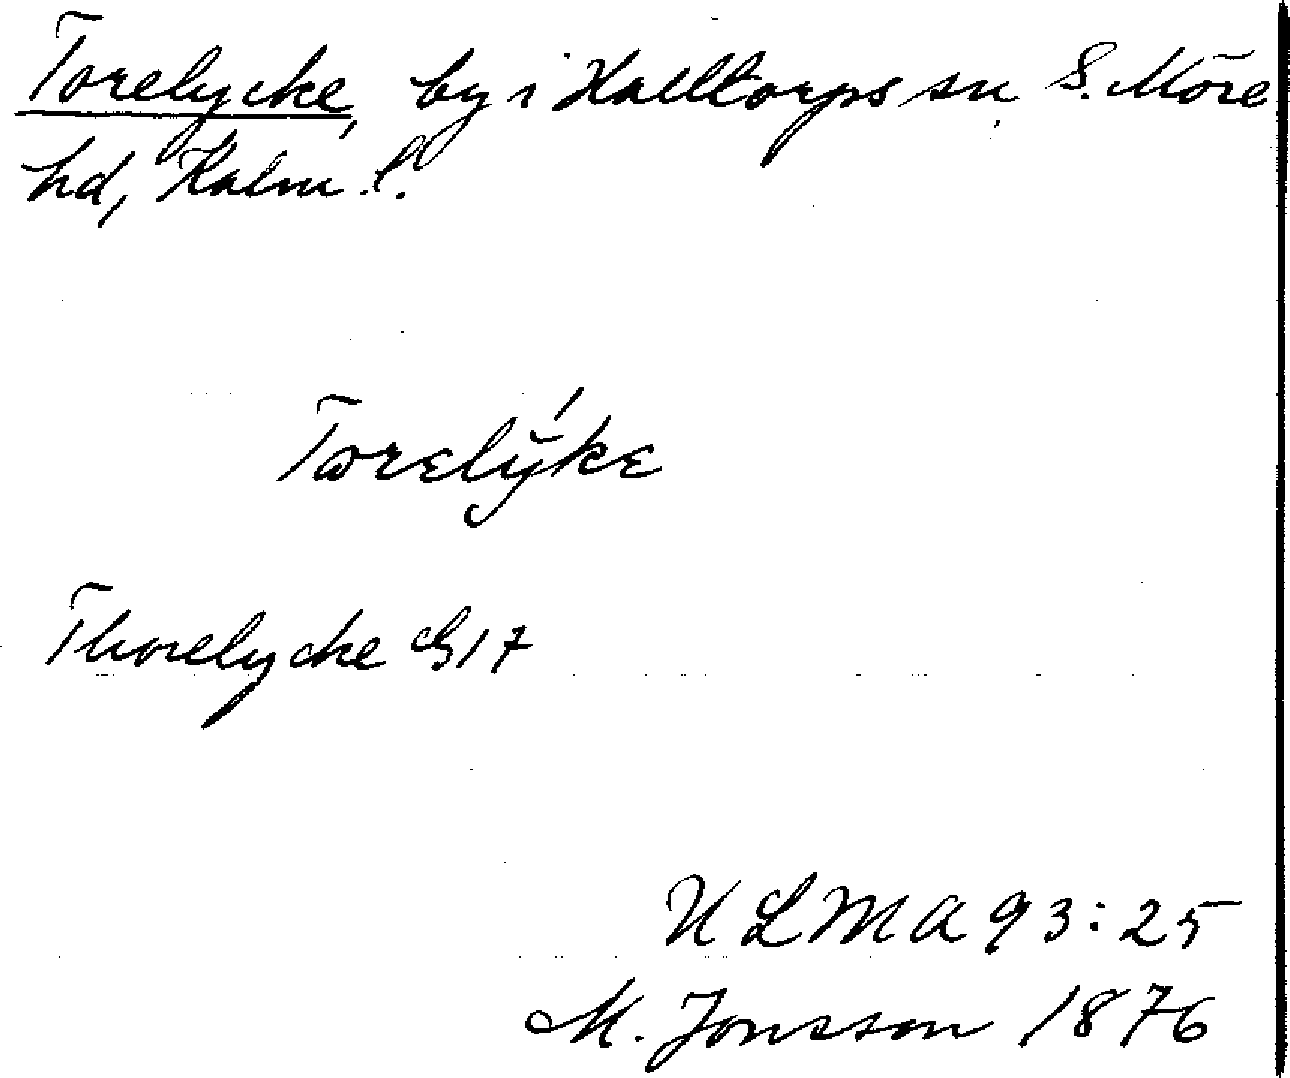 Torelycke, by i Halltorps sn, S. Möre
hd, Kalm. l.
Torely̆́ke
Thorelycke G 17
ULMA 93:25
M. Jonsson 1876